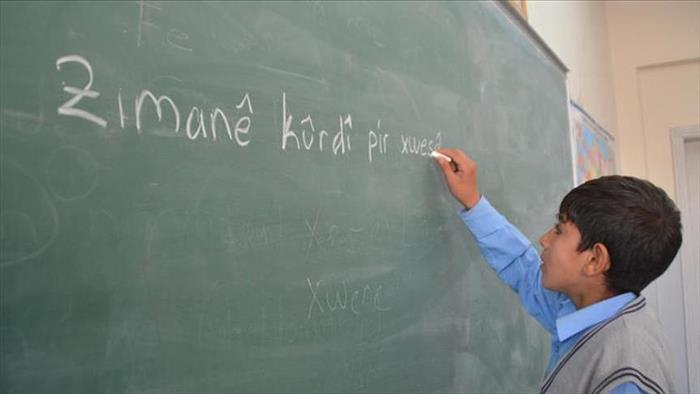 Fe
Zimanê kûrdî pir xweş
xwere